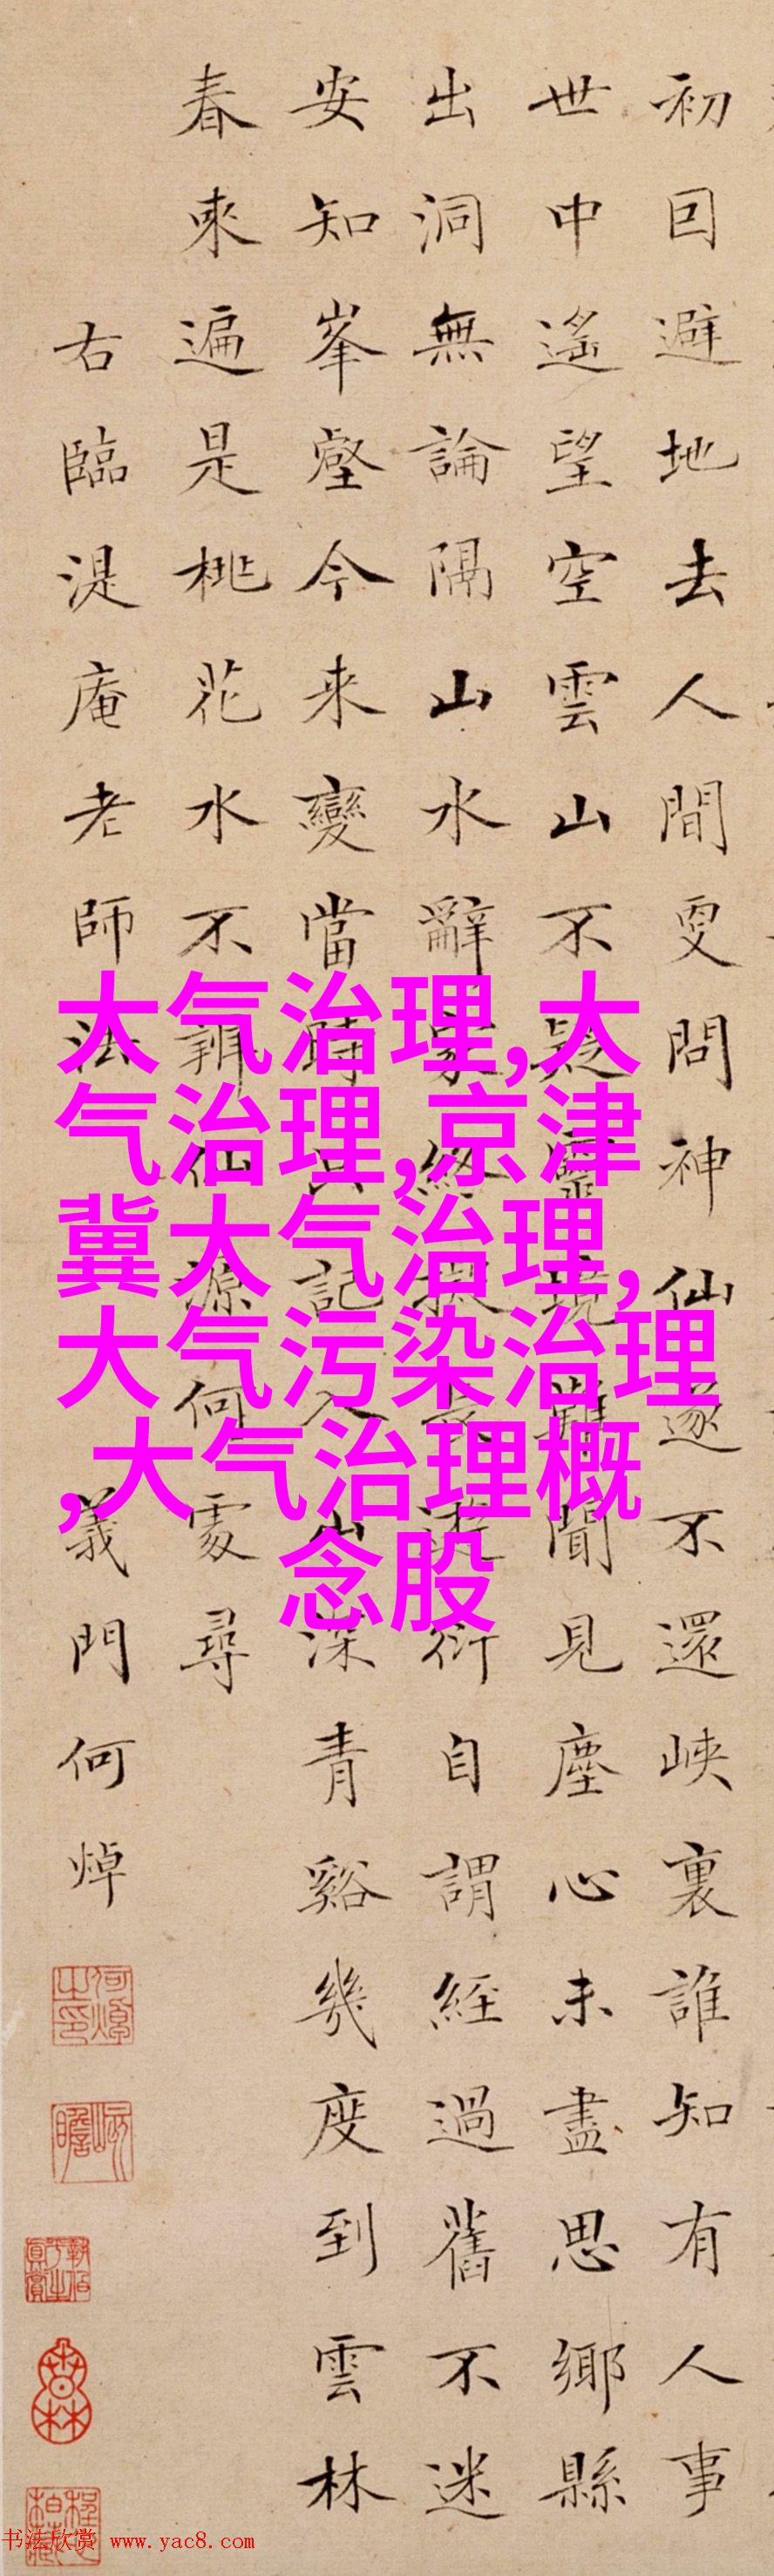 初因避地去人間更問神仙遂不還峽裏誰知有人事
世中遙望空雲山不疑靈境難聞見塵心未盡思鄉縣
出洞無論隔山水辭家終擬長遊衍自謂經過舊不迷
安知峯壑今来變當時只記入山深青谿幾度到雲林
春來遍是桃花水不辨仙源何處尋
右臨湜庵老師法
義門何焯
大气治理,大
气治理,京津
冀大气治理,
大气污染治理
,大气治理概
念股
书法欣赏 www.yac8.com